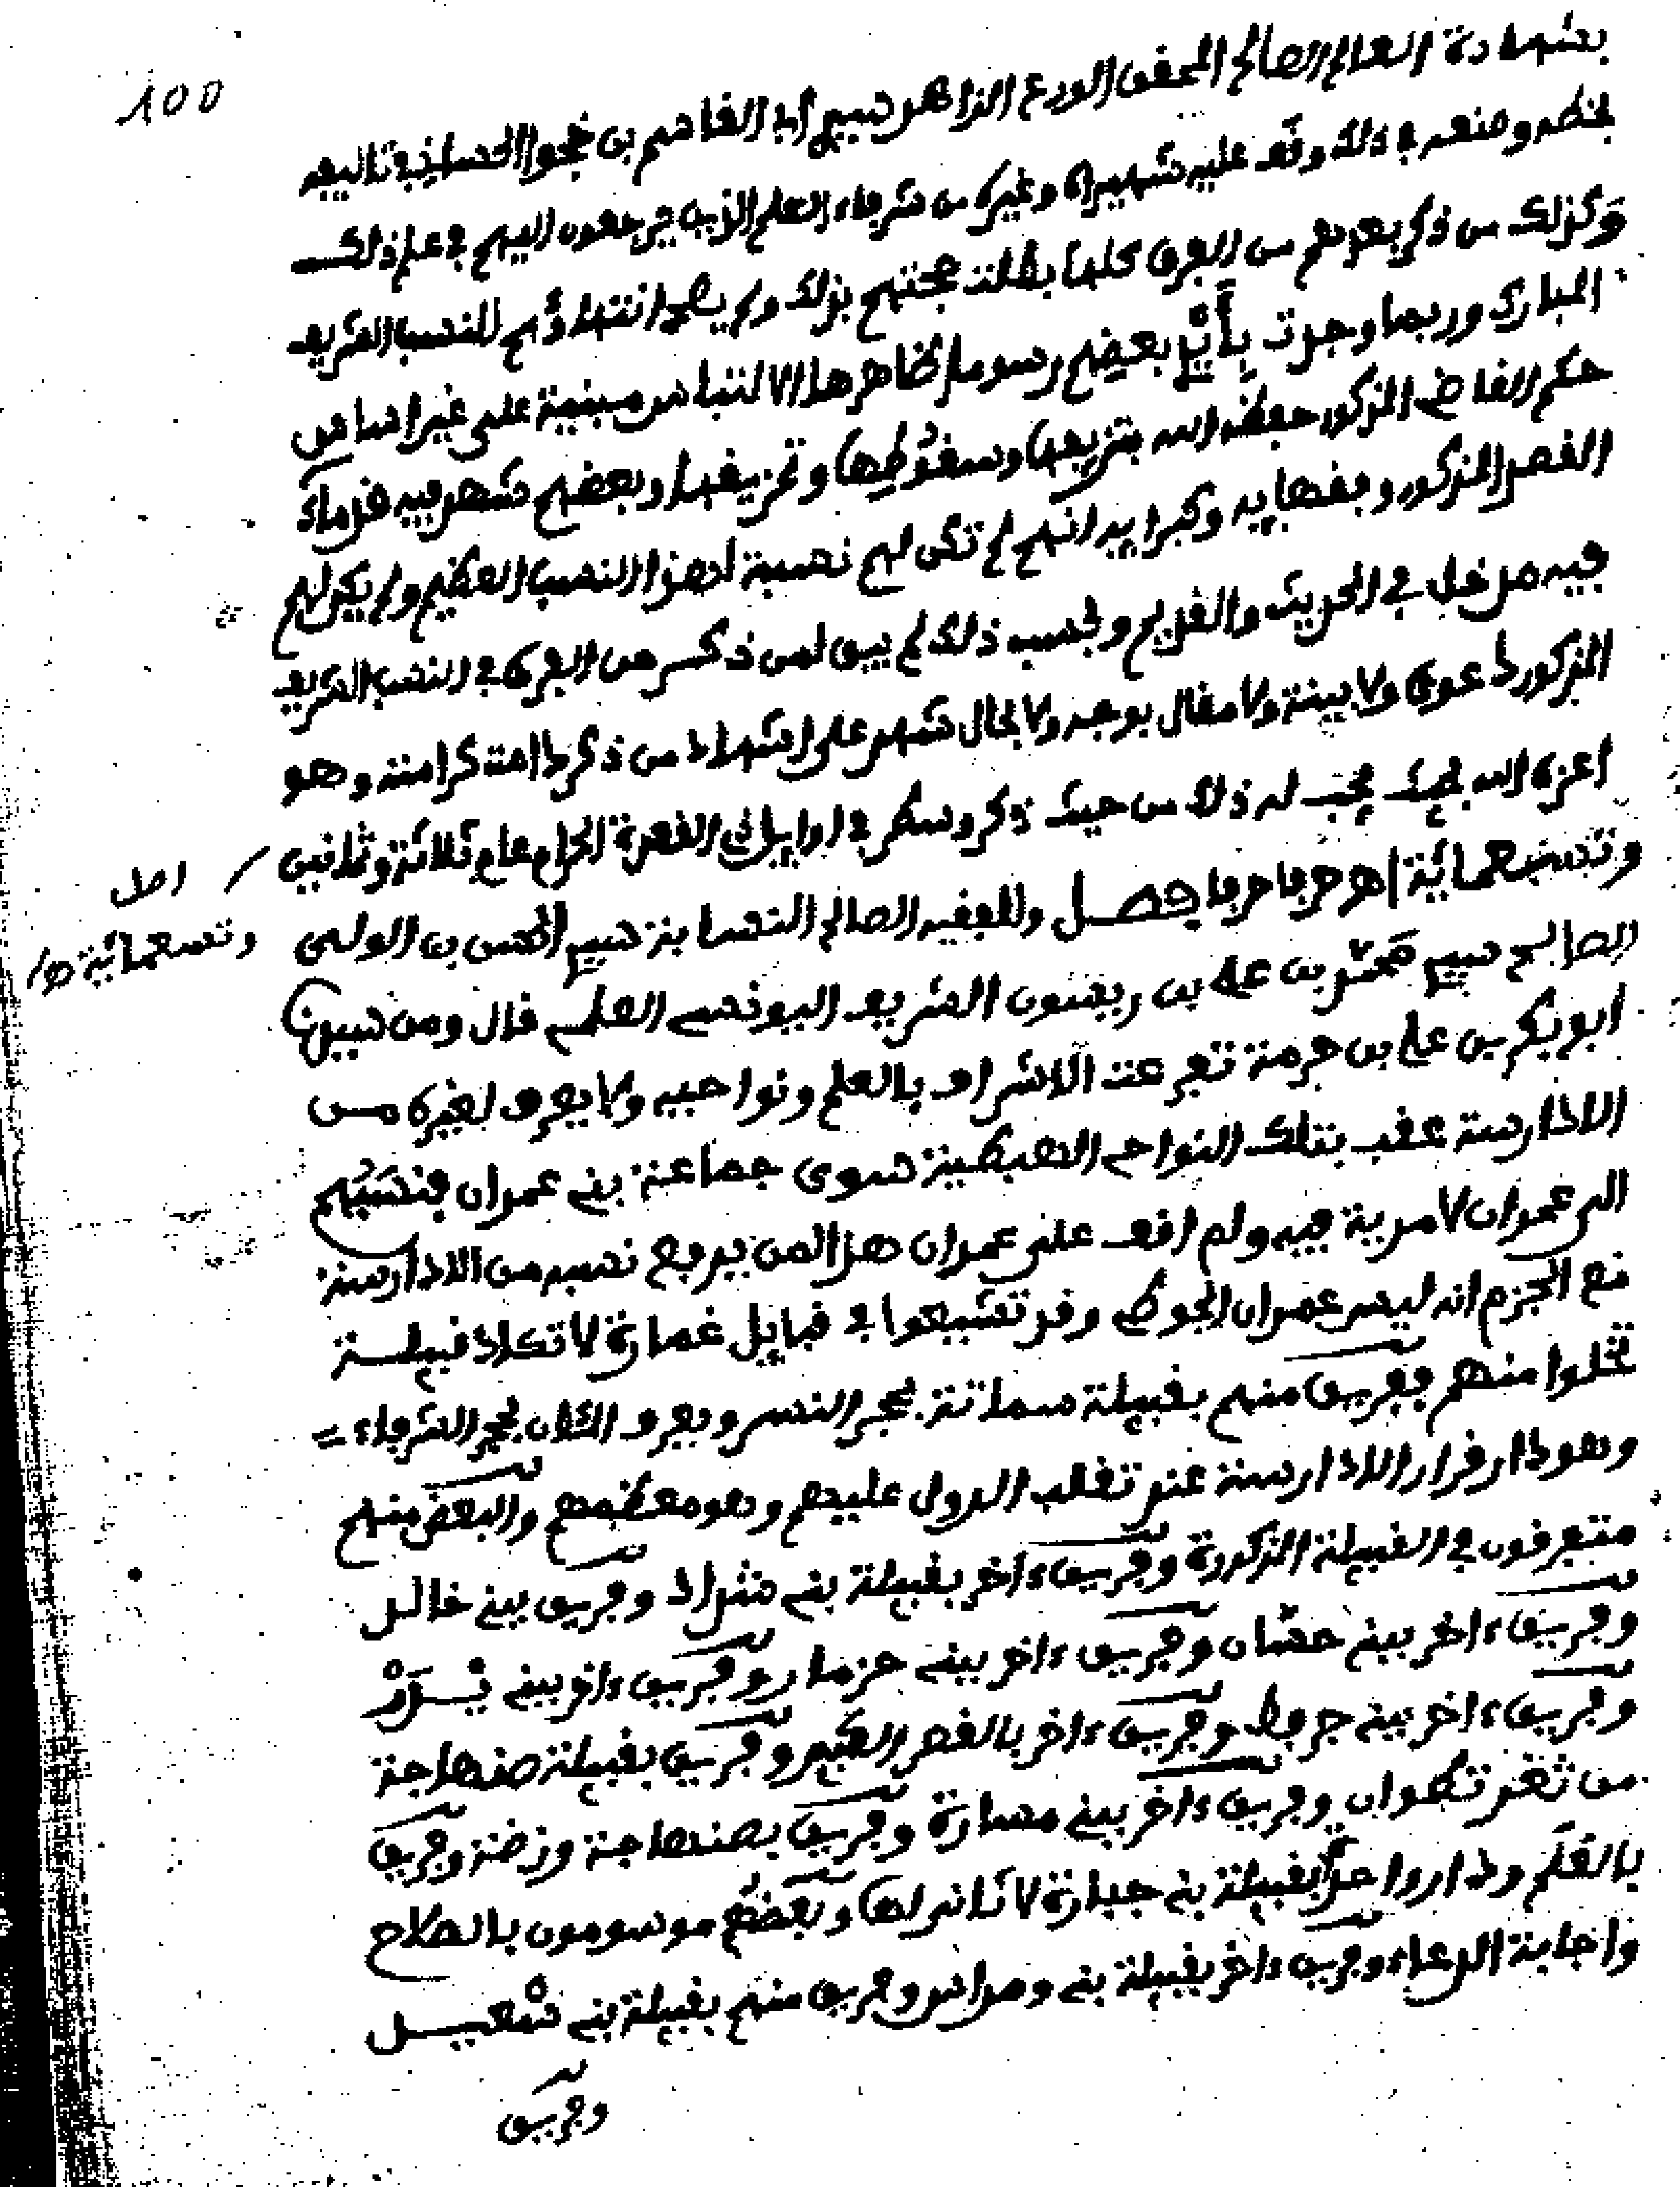 100
بشهادة العالم الصالح المحقق الورع الزاهد سيدي أبي القاسم بن خجوا الحساني في تاليفه
بخطه وضعه في ذلك وقف عليه شهيداه وغيره من شرفاء العلم الذين يرجعون اليهم في علم ذلك
وكذلك من ذكر بعدهم من الفرق كلها بطلت حجتهم بذلك ولم يصح انتماؤهم للنسب الشريف
المبارك وربما وجدت بأيد بعضهم رسوما ظاهرها الالتباس مبنية على غير اساس
حكم القاضي المذكور حفظه الله بتزييفها وسقوطها وتمزيقها وبعضهم شهد فيه قدماء
القصر المذكور وفقهايه وكبرايه انهم لم تكن لهم نسبة لهذا النسب العظيم ولم يكن لهم
فيه مدخل في الحديث والقديم وبحسب ذلك لم يبق لمن ذكر من الفرق في النسب الشريف
المذكور دعوى ولا بينة ولا مقال بوجه ولا بحال شهد على اشهاد من ذكر دامت كرامته وهو
اعزه الله بحيث يجب له ذلك من حيث ذكر وسطر في اوايل ذي القعدة الحرام عام ثلاثة وثمانين / اصل
وتسعمائة اهـ حرفا حرفا فصل وللفقيه الصالح النسابة سيدي الحسن بن الولي
وتسعمائة ص/
الصالح سيدي محمد بن علي بن ريسون الشريف اليونسي العلمي قال ومن سيدنا
ابو بكر بن علي بن حرمة تفرعت الاشراف بالعلم ونواحيه ولا يعرف لغيره من
الادارسة عقب بتلك النواحي الهبطية سوى جماعة بني عمران فنسبتهم
الى عمران لا مرية فيه ولم اقف على عمران هذا لمن يرفع نسبه من الادارسة
مع الجزم انه ليس عمران الجوطي وقد تشيعوا في قبايل غمارة لا تكاد قبيلة
تخلوا منهم ففريق منهم بقبيلة سماتة بحجر النسر ويعرف الان بحجر الشرفاء =
وهو دار قرار الادارسة عند تغلب الدول عليهم وهو معظمهم والبعض منهم
متفرقون في القبيلة المذكورة وفريق ءاخر بقبيلة بني شداد وفريق ببني خالد
وفريق ءاخر ببني حسان وفريق ءاخر ببني حزمار وفريق ءاخر ببني
وفريق ءاخر ببني جرفط وفريق ءاخر بالقصر الكبير وفريق بقبيلة صنهاجة
من ثغر تطوان وفريق ءاخر ببني مسارة وفريق بصنهاجة وزضة وفريق
بالقلم ودار واحد بقبيلة بني جبارة لا ثاني لها وبعضهم موسومون بالصلاح
واجابة الدعاء وفريق ءاخر بقبيلة بني ومراس وفريق منهم بقبيلة بني
وفريق